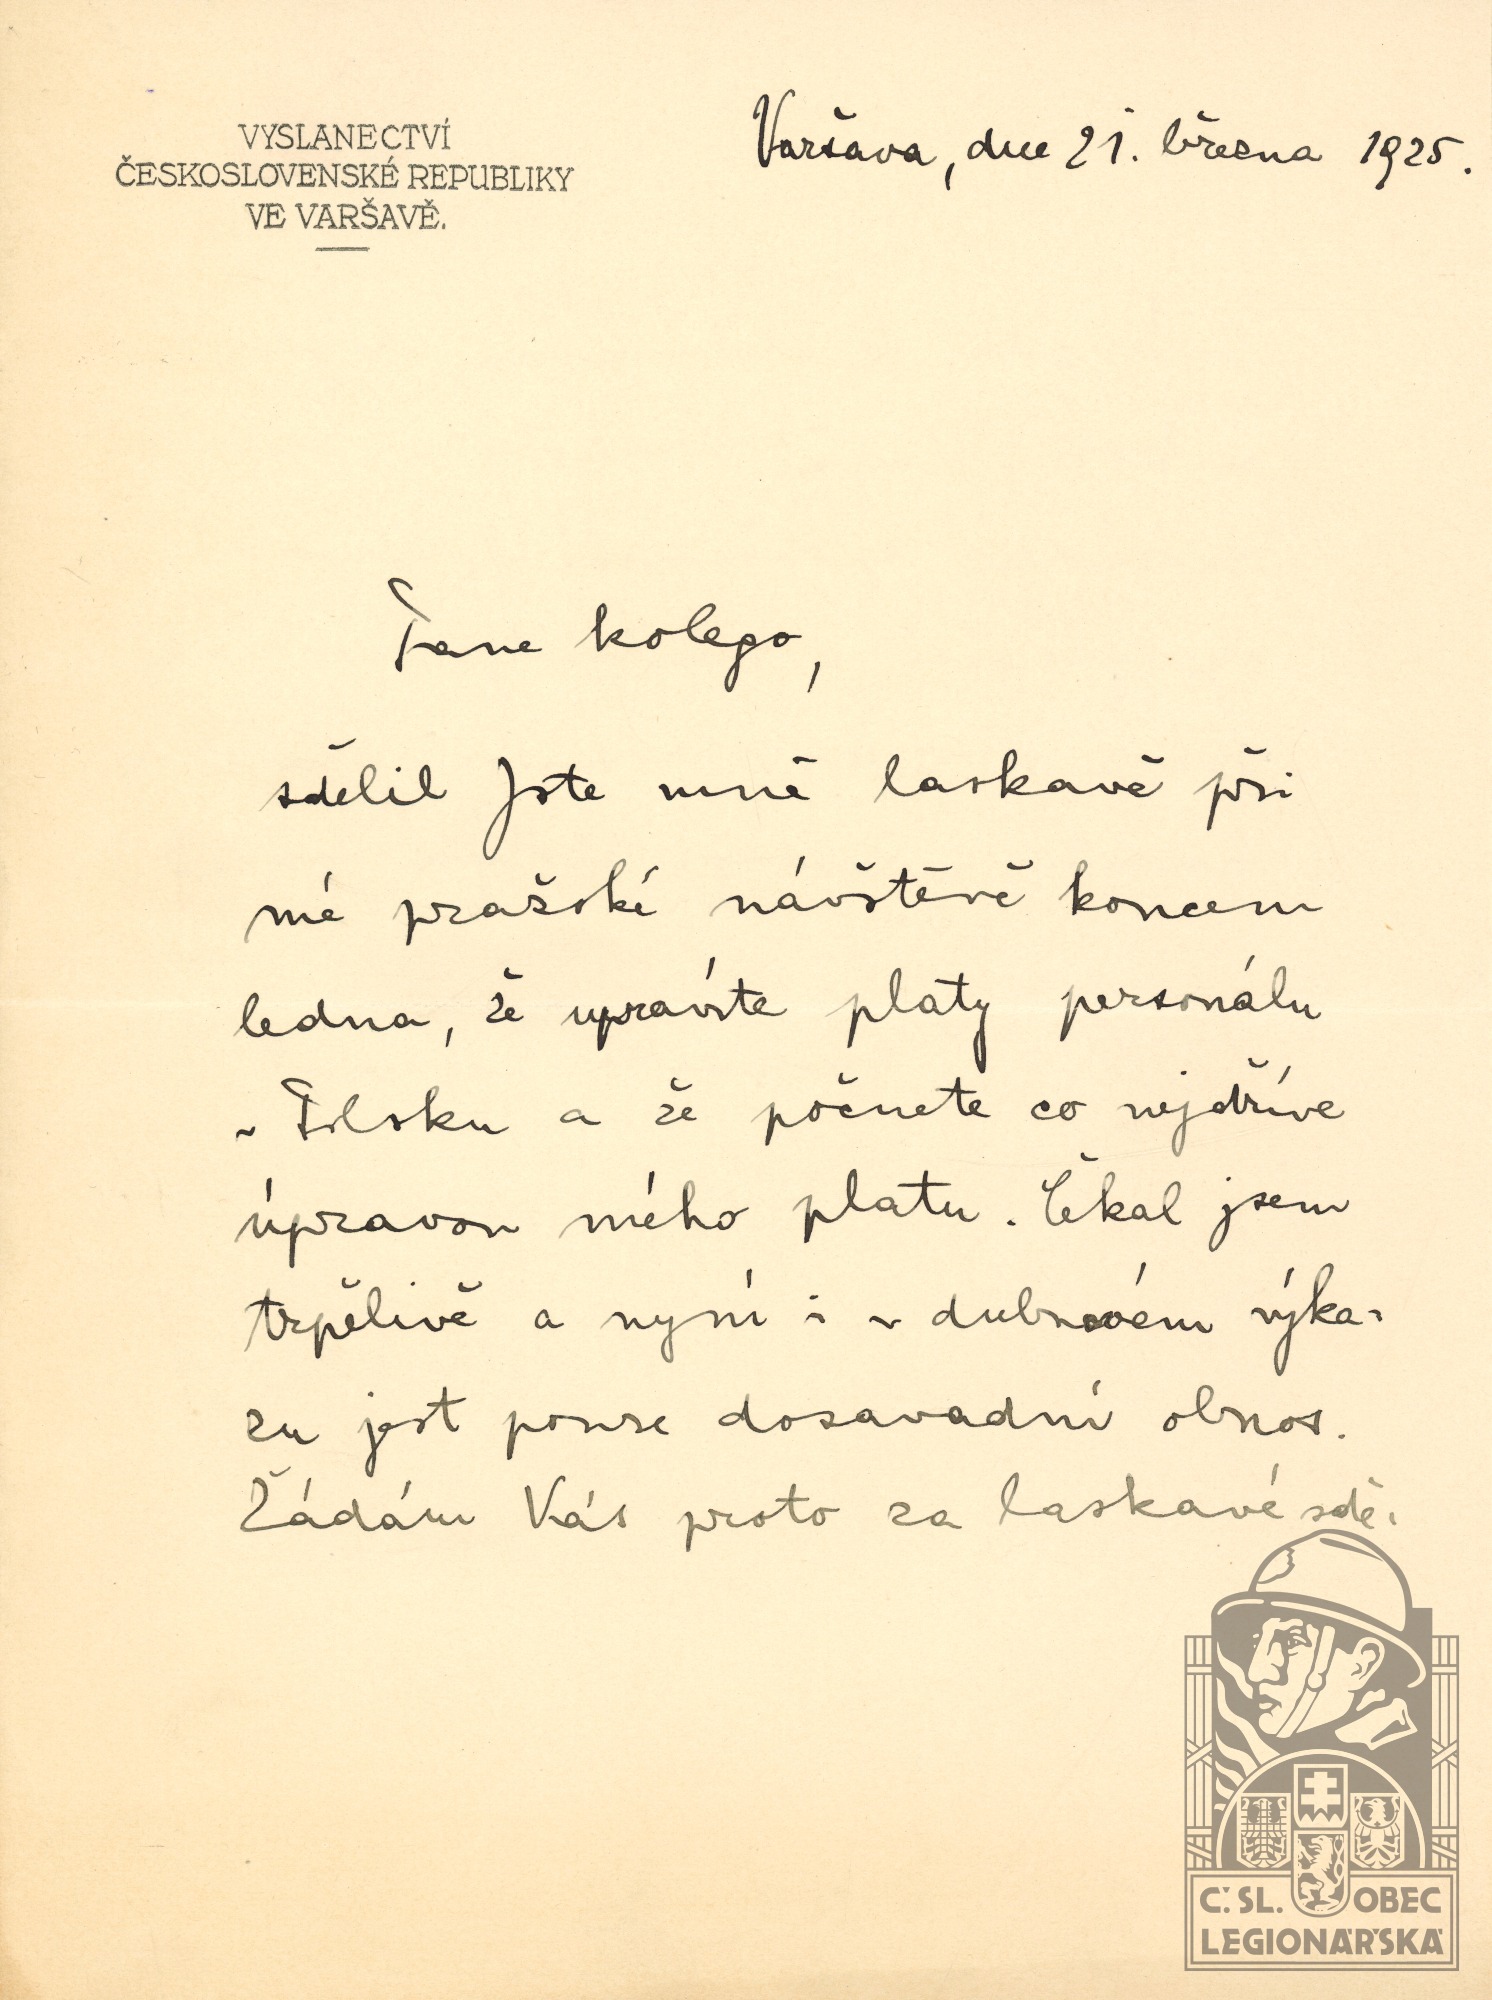 VYSLANECTVÍ
ČESKOSLOVENSKÉ REPUBLIKY
VE VARŠAVĚ.
Varšava, dne 21. března 1925.
Pane kolego,
sdělil Jste mně laskavě při
mé pražské návštěvě koncem
ledna, že upravíte platy personálu
v Polsku a že počnete co nejdříve
úpravou mého platu. Čekal jsem
trpělivě a nyní i v dubnovém výka-
zu jest pouze dosavadní obnos.
Žádám Vás proto za laskavé sdě-
Č. SL. OBEC
LEGIONÁŘSKÁ